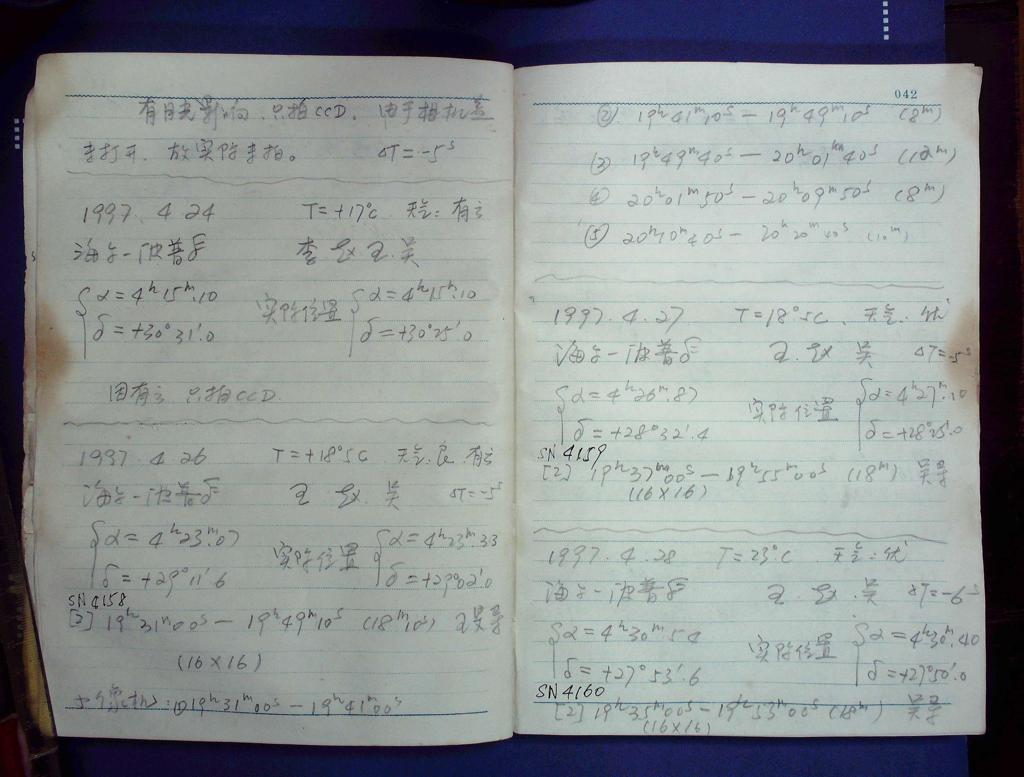 有月光影响.只拍CCD. 由于相机盖
未打开. 故实际未拍。 ΔT=-5ˢ
1997. 4. 24 T=+17°C 天气:有云
海尔-波普彗 李 赵 王.吴
α=4ʰ15ᵐ.10 实际位置 α=4ʰ15ᵐ.10
δ=+30°31′.0 δ=+30°25′.0
因有云 只拍CCD.
1997. 4. 26 T=+18°5C 天气.良.有云
海尔-波普彗 王 赵.吴 ΔT=-5ˢ
α=4ʰ23ᵐ.07 实际位置 α=4ʰ23ᵐ.33
δ=+29°11′.6 δ=+29°02′.0
SN4158
[2] 19ʰ31ᵐ00ˢ-19ʰ49ᵐ10ˢ (18ᵐ10ˢ) 王吴
(16×16)
:①19ʰ31ᵐ00ˢ-19ʰ41ᵐ00ˢ
042
② 19ʰ41ᵐ10ˢ-19ʰ49ᵐ10ˢ (8ᵐ)
③ 19ʰ49ᵐ40ˢ-20ʰ01ᵐ40ˢ (12ᵐ)
④ 20ʰ01ᵐ50ˢ-20ʰ09ᵐ50ˢ (8ᵐ)
⑤ 20ʰ10ᵐ40ˢ-20ʰ20ᵐ40ˢ (10ᵐ)
1997. 4. 27 T=18°5C. 天气.优
海尔-波普彗 王.赵 吴 ΔT=-5ˢ
α=4ʰ26ᵐ.87 实际位置 α=4ʰ27ᵐ.10
δ=+28°32′.4 δ=+28°25′.0
SN4159
[2] 19ʰ37ᵐ00ˢ-19ʰ55ᵐ00ˢ (18ᵐ) 吴
(16×16)
1997. 4. 28 T=23°C 天气:优
海尔-波普彗 王.赵.吴 ΔT=-6ˢ
α=4ʰ30ᵐ.54 实际位置 α=4ʰ30ᵐ.40
δ=+27°53′.6 δ=+27°50′.0
SN4160
[2] 19ʰ35ᵐ00ˢ-19ʰ53ᵐ00ˢ (18ᵐ) 吴
(16×16)